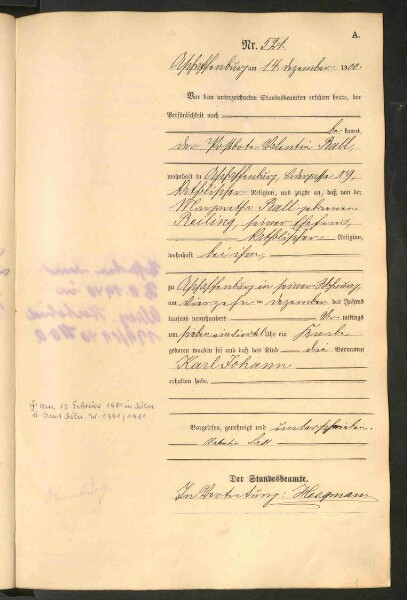 A.
Nr. 521.
Aschaffenburg am 14. Dezember 1900.
Vor dem unterzeichneten Standesbeamten erschien heute, der
Persönlichkeit nach
be kannt,
der Postbote Valentin Ball,
wohnhaft in Aschaffenburg, 19,
katholischer Religion, und zeigte an, daß von der
Margaretha Ball geborenen
Reiling, seiner Ehefrau,
katholischer Religion,
wohnhaft bei ihm,
zu Aschaffenburg in seiner Wohnung,
am vierzehn ten Dezember des Jahres
tausend neunhundert Vor mittags
um Uhr ein Knabe
geboren worden sei und daß das Kind die Vornamen
Karl Johann
erhalten habe.
† am 10. Februar 1981 in Köln
St. Amt Köln, Nr. 1391/1981
Vorgelesen, genehmigt und unterschrieben.
Valentin Ball
Der Standesbeamte.
In Vertretung: Heegmann